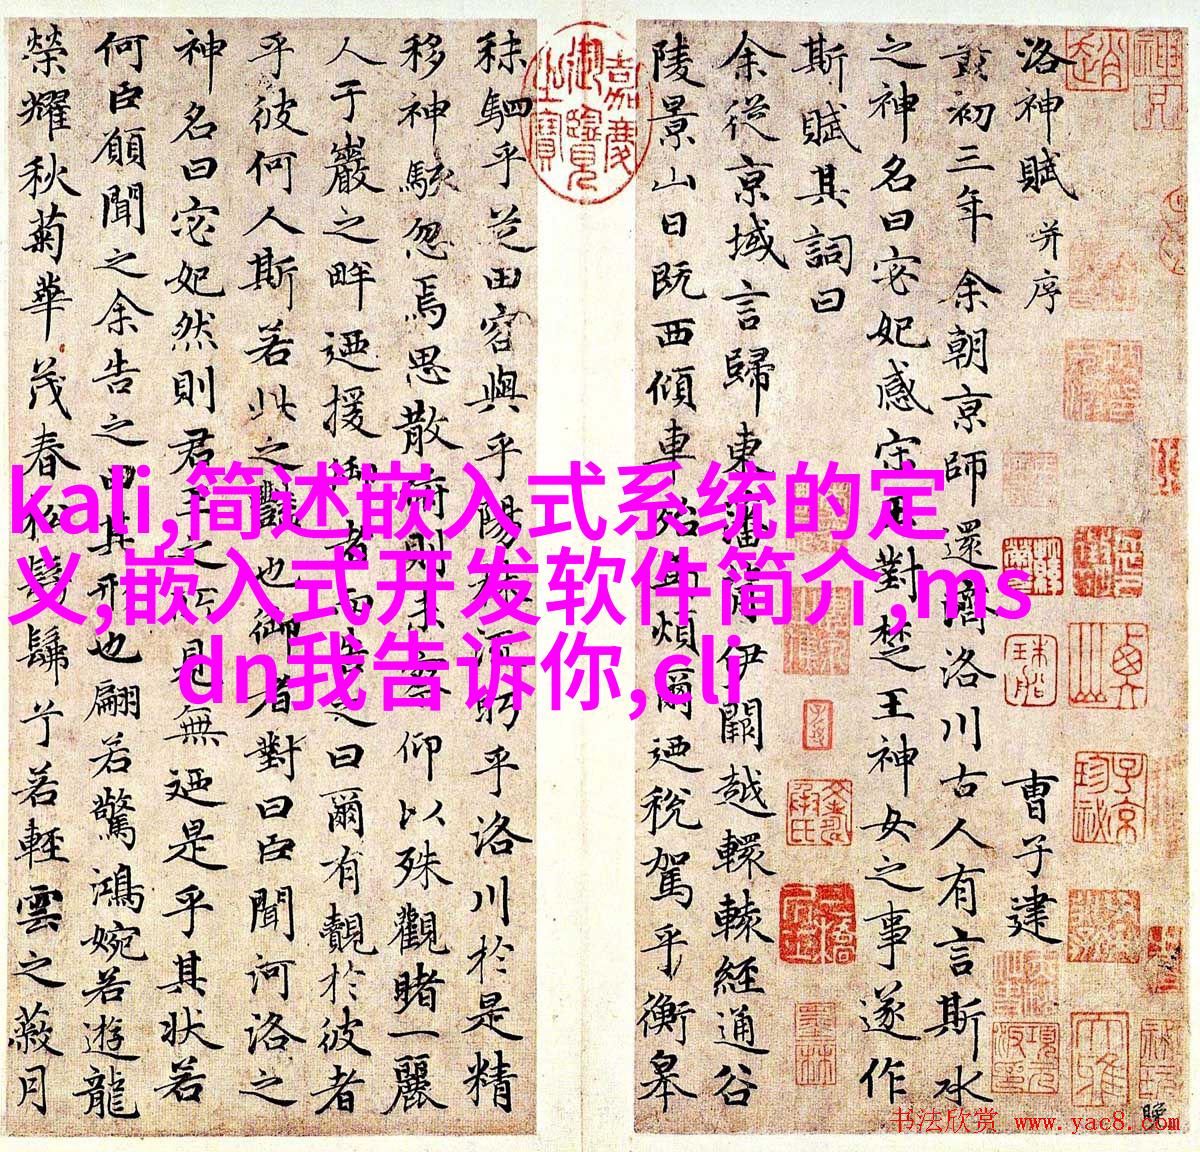 洛神賦 并序 曹子建
黃初三年余朝京師還濟洛川古人有言斯水
之神名曰宓妃感宋玉對楚王神女之事遂作
斯賦其詞曰
余從京域言歸東藩背伊闕越轘轅經通谷
陵景山日既西傾車殆馬煩爾迺稅駕乎衡皋
嘉慶御覽之寶
秣駟乎芝田容與乎陽林流眄乎洛川於是精
移神駭忽焉思散俯則未察仰以殊觀睹一麗
人于巖之畔迺援御者而告之曰爾有覿於彼者
乎彼何人斯若此之豔也御者對曰臣聞河洛之
神名曰宓妃然則君王之所見無迺是乎其狀若
何臣願聞之余告之曰其形也翩若驚鴻婉若遊龍
榮耀秋菊華茂春松髣髴兮若輕雲之蔽月
kali,简述嵌入式系统的定
义,嵌入式开发软件简介,ms
dn我告诉你,cli
书法欣赏 www.yac8.com